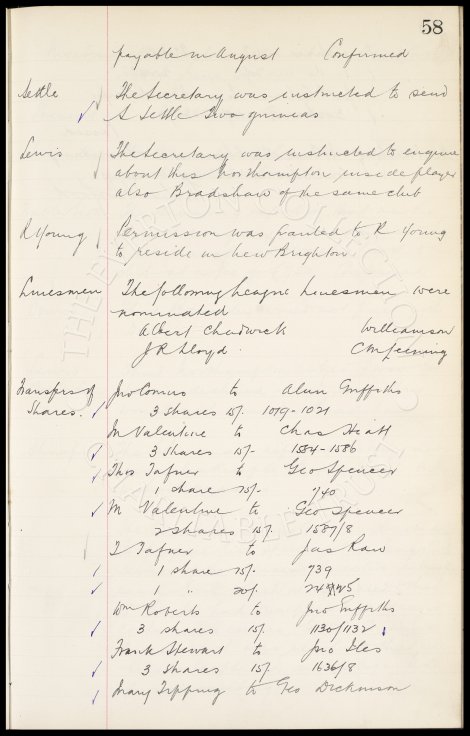 58
payable in August Confirmed
Settle The Secretary was instructed to send
S Settle Two guineas
Lewis The Secretary was instructed to enquire
about this Northampton inside player
also Bradshaw of the same club
R Young Permission was granted to R Young
to reside in New Brighton
Linesmen The following League linesmen were
nominated
Albert Chadwick Williamson
J R Lloyd
Transfers of Jno to Alun Griffiths
Shares. 3 shares 15/. 1019-1021
M Valentine to Chas Hiatt
3 Shares 15/- 1584-1586
Thos Tafner to Geo Spencer
1 share 15/- 740
M Valentine to Geo Spencer
2 shares 15/. 1587/8
T Tafner to Jas Raw
1 share 15/- 739
1 " 20/.
Wm Roberts to Jno Griffiths
3 shares 15/. 1130/1132
Frank Stewart to Jno Iles
3 shares 15/. 1636/8
Mary Tipping to Geo Dickinson
THE EVERTON COLLECTION
CHARITABLE TRUST